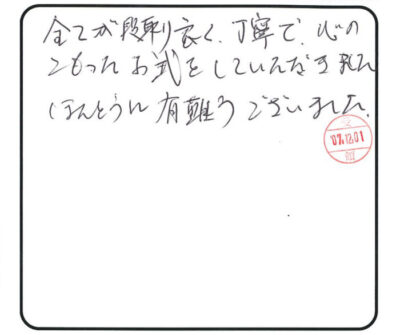 全てが段取り良く、丁寧で、心の
こもったお式をしていただきました
ほんとうに有難うございました。
07.12.01